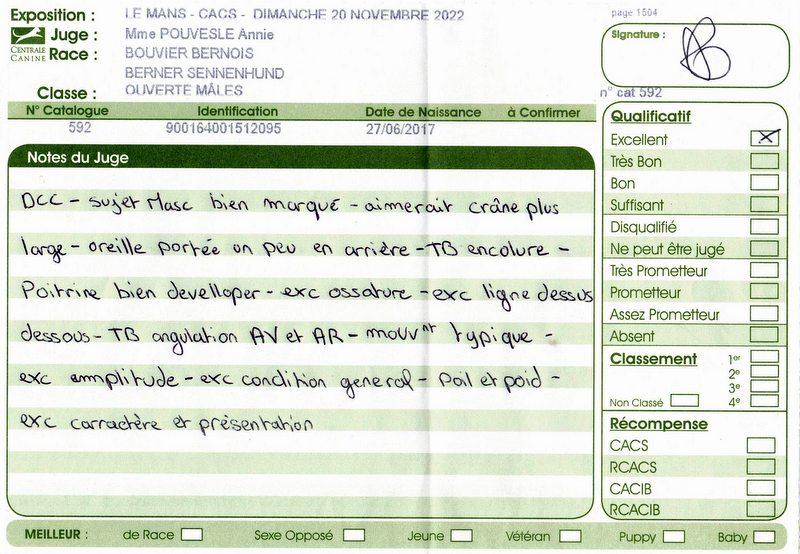 Exposition : LE MANS - CACS - DIMANCHE 20 NOVEMBRE 2022
page 1504
CENTRALE CANINE
Juge : Mme POUVESLE Annie
Race : BOUVIER BERNOIS
BERNER SENNENHUND
Classe : OUVERTE MÂLES
Signature :
n° cat 592
N° Catalogue Identification Date de Naissance à Confirmer
592 900164001512095 27/06/2017
Notes du Juge
DCC - sujet Masc bien marqué - aimerait crâne plus
large - oreille portée un peu en arrière - TB encolure -
Poitrine bien develloper - exc ossature - exc ligne dessus
dessous - TB angulation AV et AR - mouvnt typique -
exc ammplitude - exc condition general - poil et poid -
exc carractère et présentation
Qualificatif
Excellent
Très Bon
Bon
Suffisant
Disqualifié
Ne peut être jugé
Très Prometteur
Prometteur
Assez Prometteur
Absent
Classement 1er
2e
3e
Non Classé 4e
Récompense
CACS
RCACS
CACIB
RCACIB
MEILLEUR : de Race Sexe Opposé Jeune Vétéran Puppy Baby